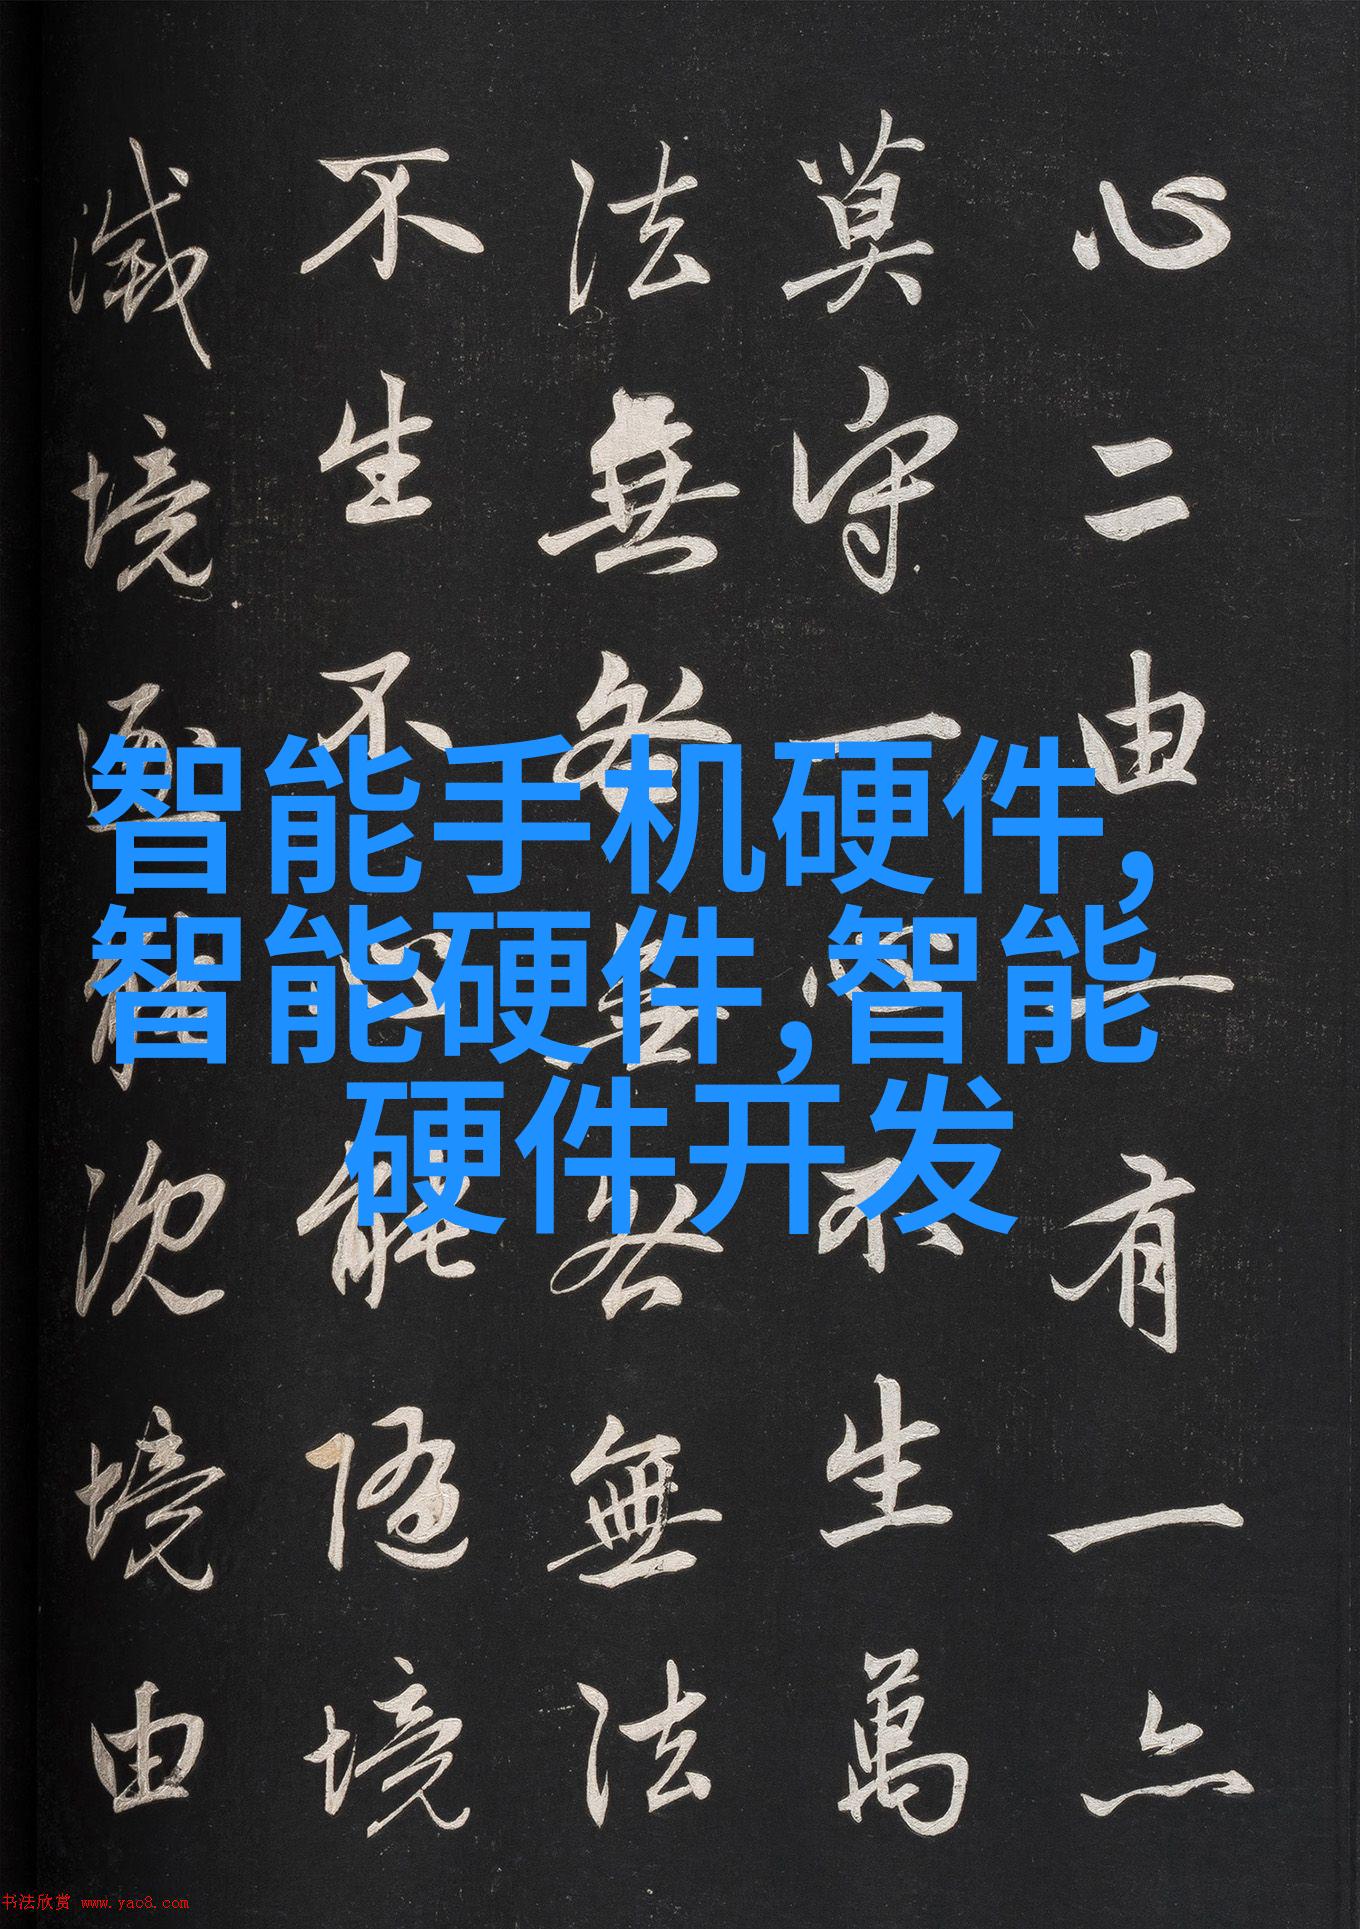 心二由一有一亦
莫守一心不生萬
法無咎無咎無法
不生不心能隨境
滅境逐能沉境由
智能手机硬件,
智能硬件,智能
硬件开发
书法欣赏 www.yac8.com